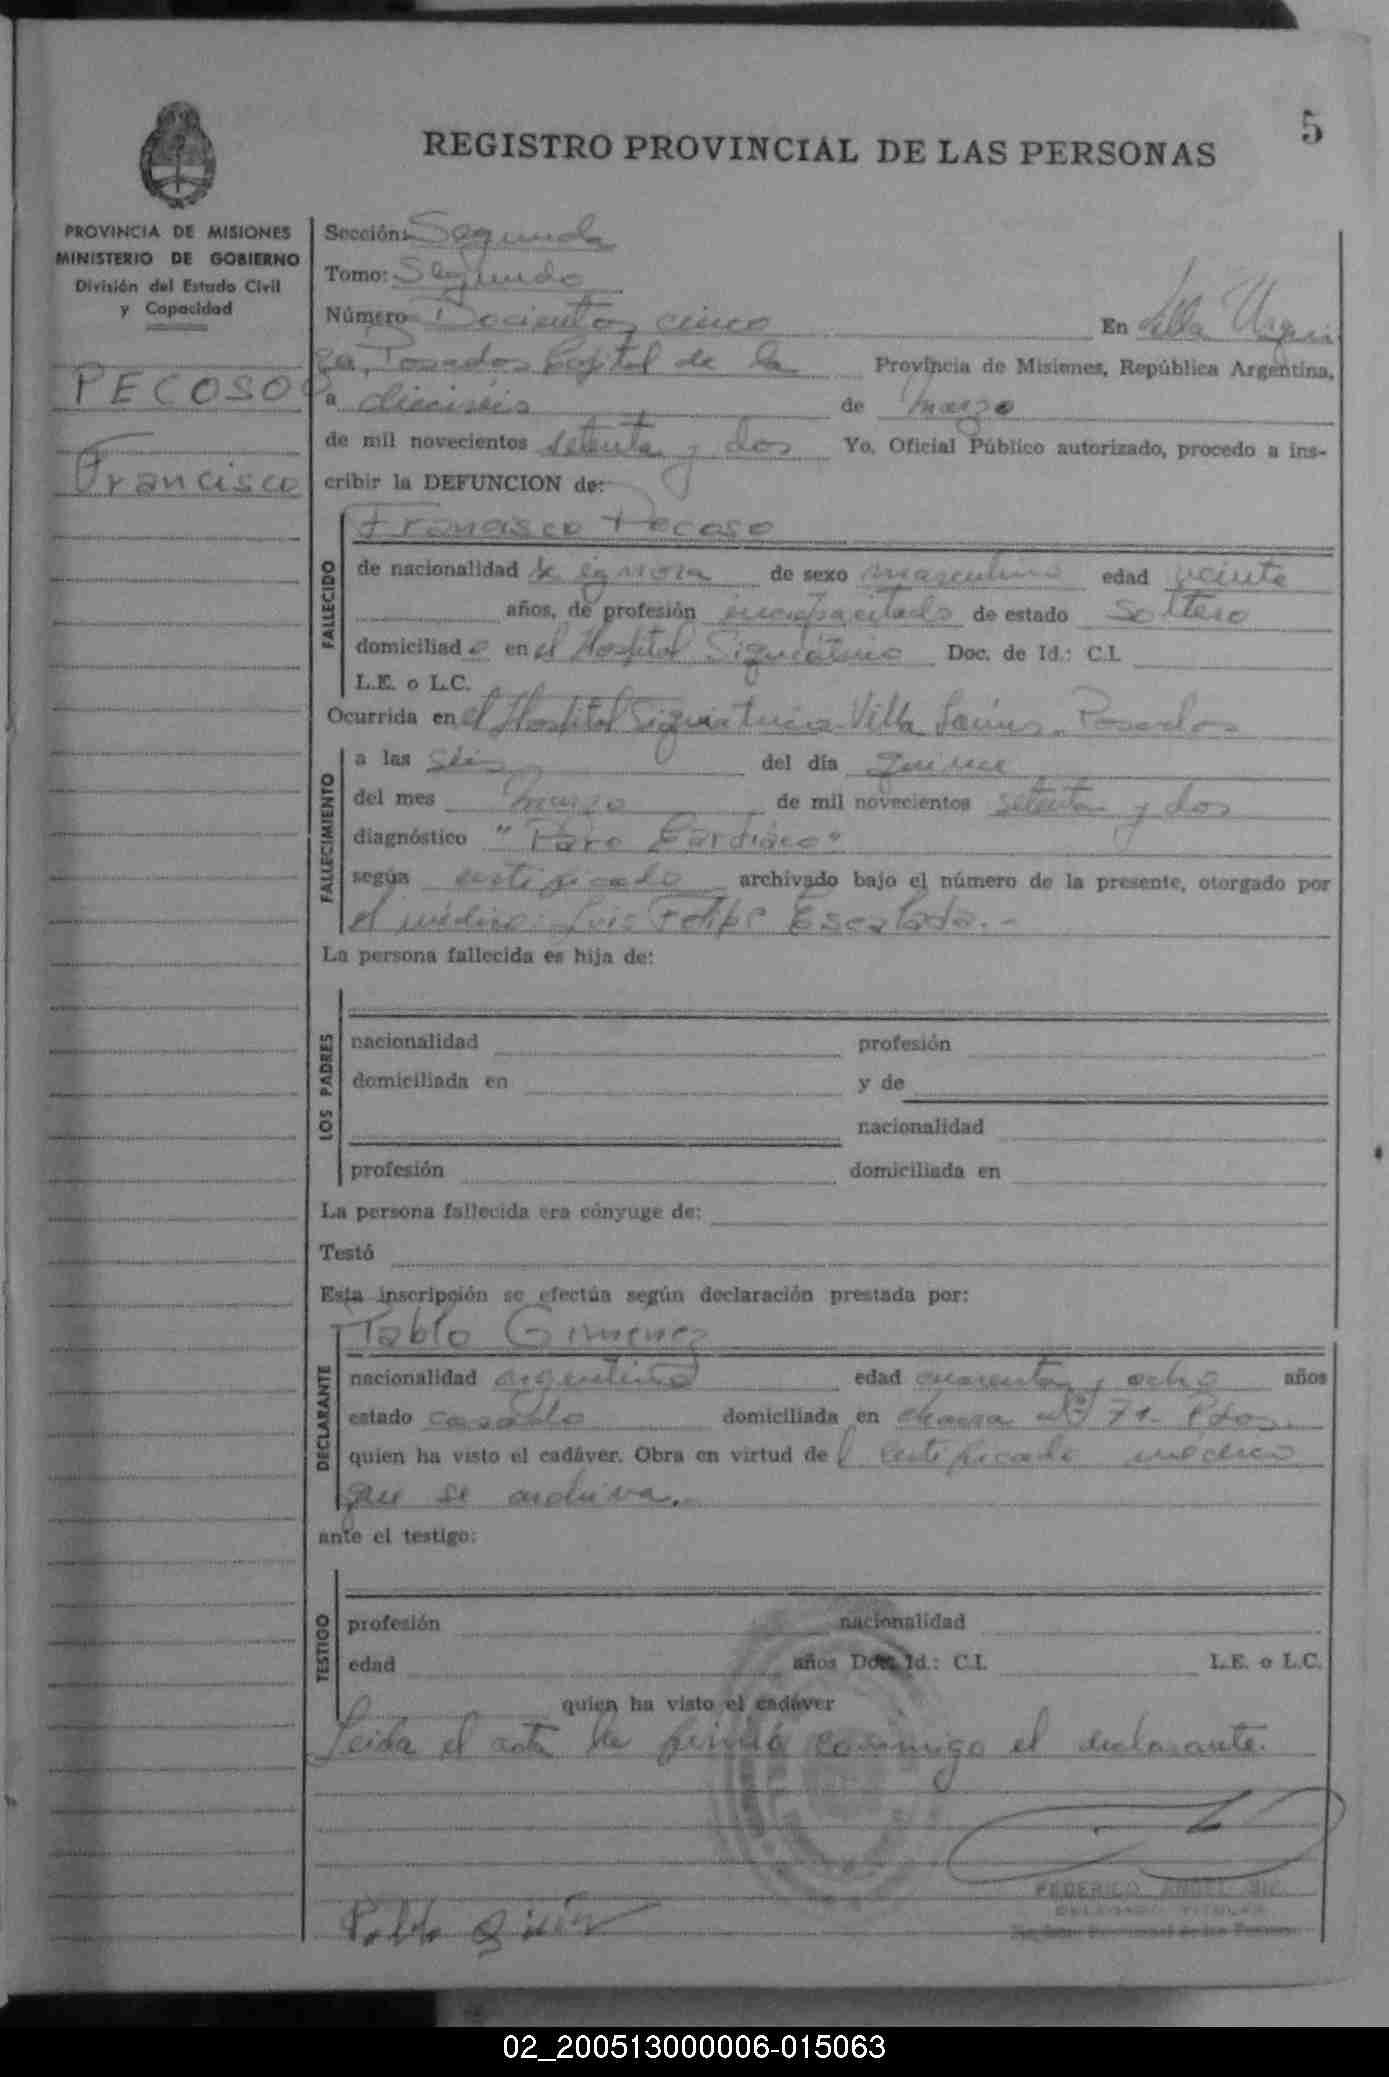 5
REGISTRO PROVINCIAL DE LAS PERSONAS
PROVINCIA DE MISIONES
MINISTERIO DE GOBIERNO
División del Estado Civil
y Capacidad
PECOSO
Francisco
Sección: Segunda
Tomo: Segundo
Número Docientos cinco En Villa Urqui
za, Posadas Capital de la Provincia de Misiones, República Argentina,
a dieciseis de marzo
de mil novecientos setenta y dos Yo, Oficial Público autorizado, procedo a ins-
cribir la DEFUNCION de:
Francisco Pecoso
FALLECIDO
de nacionalidad se ignora de sexo masculino edad veinte
años, de profesión incapacitado de estado soltero
domiciliado en el Hospital Siquiátrico Doc. de Id.: C.I.
L.E. o L.C.
Ocurrida en el Hospital Siquiatrico Villa Lanús. Posadas
FALLECIMIENTO
a las seis del día quince
del mes marzo de mil novecientos setenta y dos
diagnóstico "Paro Cardiaco"
según certificado archivado bajo el número de la presente, otorgado por
el médico: Luis Felipe Escalada.-
La persona fallecida es hija de:
LOS PADRES
nacionalidad profesión
domiciliada en y de
nacionalidad
profesión domiciliada en
La persona fallecida era cónyuge de:
Testó
Esta inscripción se efectúa según declaración prestada por:
Pablo Gimenez
DECLARANTE
nacionalidad argentino edad cuarenta y ocho años
estado casado domiciliada en chacra Nº 71- Pdas.
quien ha visto el cadáver. Obra en virtud del certificado médico
que se archiva.-
ante el testigo:
TESTIGO
profesión nacionalidad
edad años Doc. Id.: C.I. L.E. o L.C.
quien ha visto el cadáver
Leida el acta la firmó conmigo el declarante.
Pablo
FEDERICO ANGEL
DELEGADO TITULAR
02_200513000006-015063